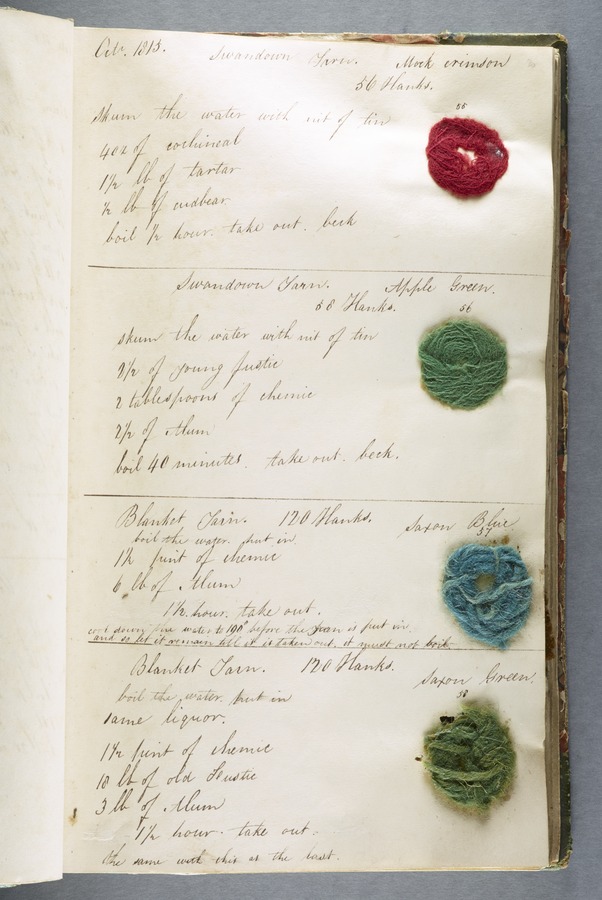 Octr. 1813. Swandown Yarn. Mock crimson
56 Hanks.
55
skum the water with nit of tin
4oz of cochineal
1½ lb of tartar
½ lb of cudbear
boil ½ hour. take out. beck
Swandown Yarn. Apple Green.
58 Hanks.
56
skum the water with nit of tin
of young fustic
2 tablespoons of chemic
2½ of Alum
boil 40 minutes. take out. beck.
Blanket Yarn. 120 Hanks. Saxon Blue
57
boil the water. put in
pint of chemic
6 lb of Alum
1½ hour. take out.
cool down the water to 190° before the yarn is put in.
and so let it remain till it is taken out. it must not boil.
Blanket Yarn. 120 Hanks. Saxon Green.
58
boil the water. put in
same liquor.
1½ pint of chemic
10 lb of old Fustic
3 lb of Alum
1½ hour. take out.
the same with this as the last.